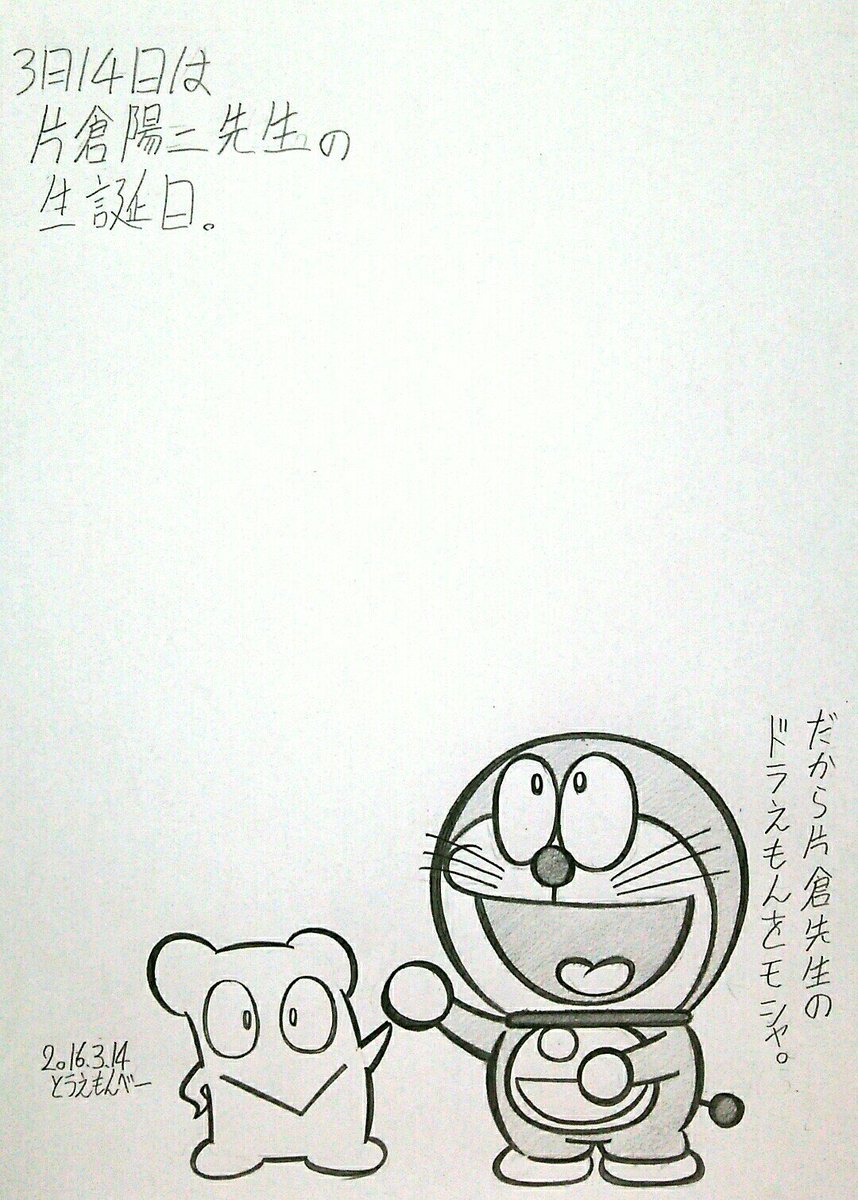 3月14日は
片倉陽二先生の
生誕日。
だから片倉先生の
ドラえもんをモシャ。
2016.3.14
とらえもんべー